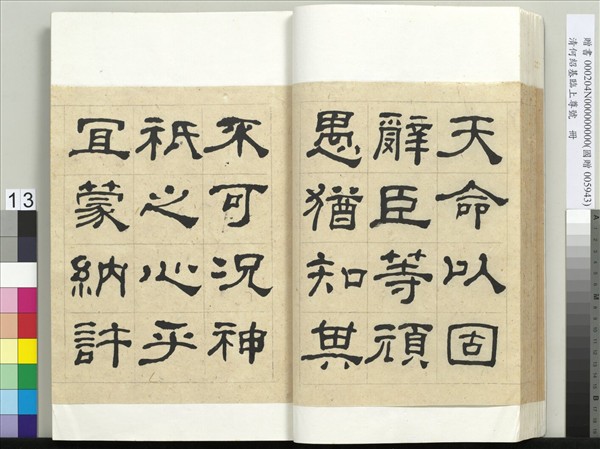 天命以固
辭臣等頑
愚猶知其
不可況神
祇之心乎
宜蒙納許
贈書 000204N000000000(國贈 005943)
清何紹基臨上尊號 冊
13